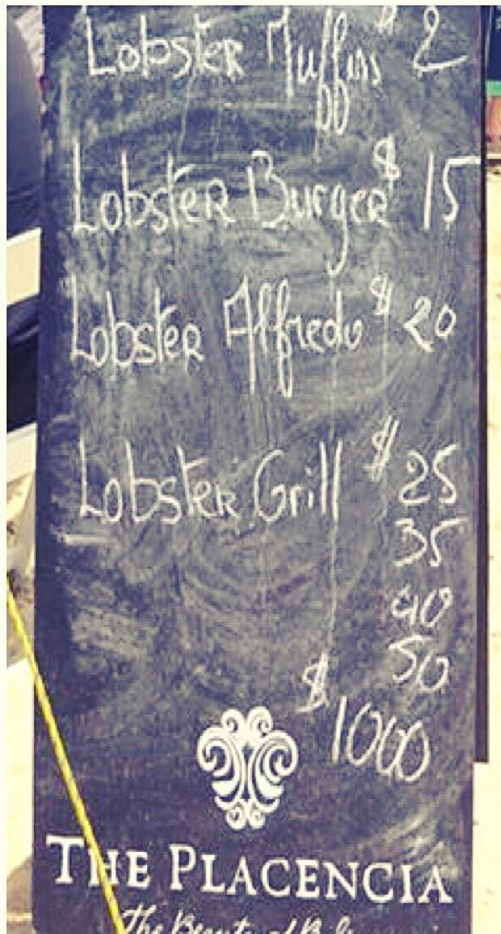 Lobster Muffins $ 2
Lobster Burger $ 15
Lobster Alfredo $ 20
Lobster Grill $ 25
35
40
50
$ 1000
THE PLACENCIA
The Beauty of